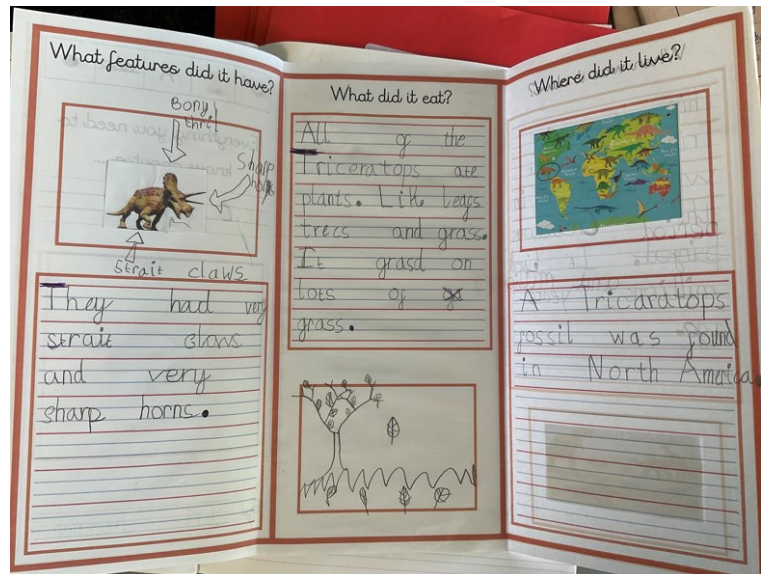 What features did it have?
Bony
Sharp
strait claws
They had very
strait claws
and very
sharp horns.
What did it eat?
All of the
Triceratops ate
plants. Like leafs
trees and grass.
It grasd on
lots of
grass.
Where did it live?
A Tricaratops
fossil was found
in North America.